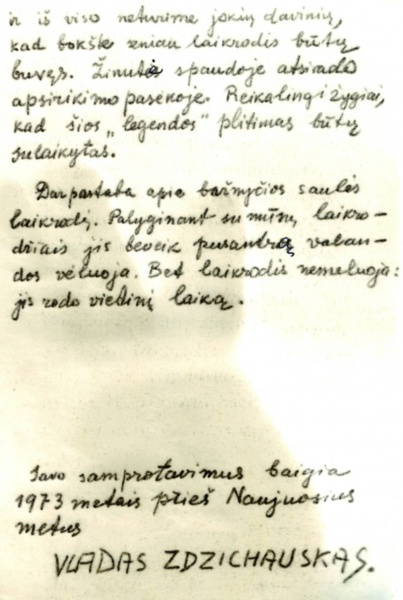 ir iš viso neturime jokių davinių,
kad bokšte vienu laikrodis būtų
buvęs. Žinutė spaudoje atsirado
apsirikimo pasėkoje. Reikalingi žygiai,
kad šios „legendos" plitimas būtų
sulaikytas.
Dar pastaba apie bažnyčios saulės
laikrodį. Palyginant su mūsų laikro-
džiais jis beveik pusantrą valan-
dos vėluoja. Bet laikrodis nemeluoja:
jis rodo vietinį laiką.
Savo samprotavimus baigia
1973 metais prieš Naujuosius
metus
VLADAS ZDZICHAUSKAS.